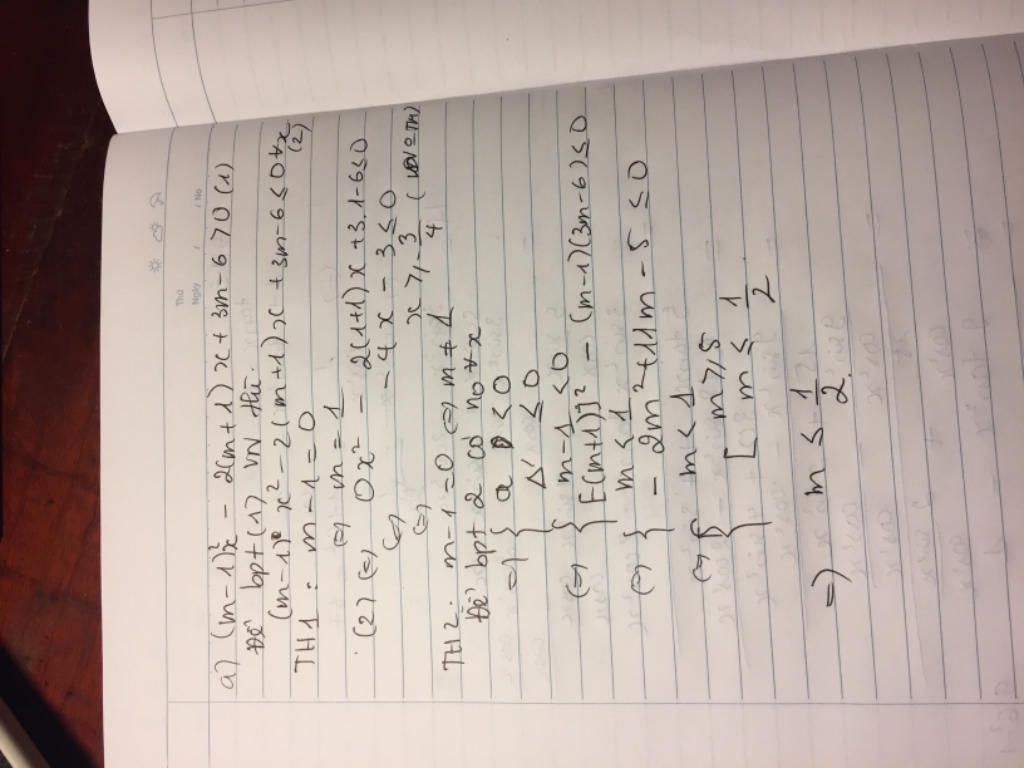 Thứ
Ngày / No
a) (m-1)x² - 2(m+1)x + 3m - 6 > 0 (1)
Để bpt (1) VN thì.
(m-1)x² - 2(m+1)x + 3m - 6 ≤ 0 ∀x (2)
TH1: m - 1 = 0
⇔ m = 1
(2) ⇔ 0x² - 2(1+1)x + 3.1 - 6 ≤ 0
⇔ - 4x - 3 ≤ 0
⇔ x ≥ - 3/4 (loại)
TH2. m - 1 ≠ 0 ⇔ m ≠ 1
Để bpt 2 có no ∀x
⇒ { a < 0
Δ' ≤ 0
⇔ { m - 1 < 0
[-(m+1)]² - (m-1)(3m-6) ≤ 0
⇔ { m < 1
- 2m² + 11m - 5 ≤ 0
⇔ { m < 1
[ m ≥ 5
m ≤ 1/2
⇒ m ≤ 1/2.